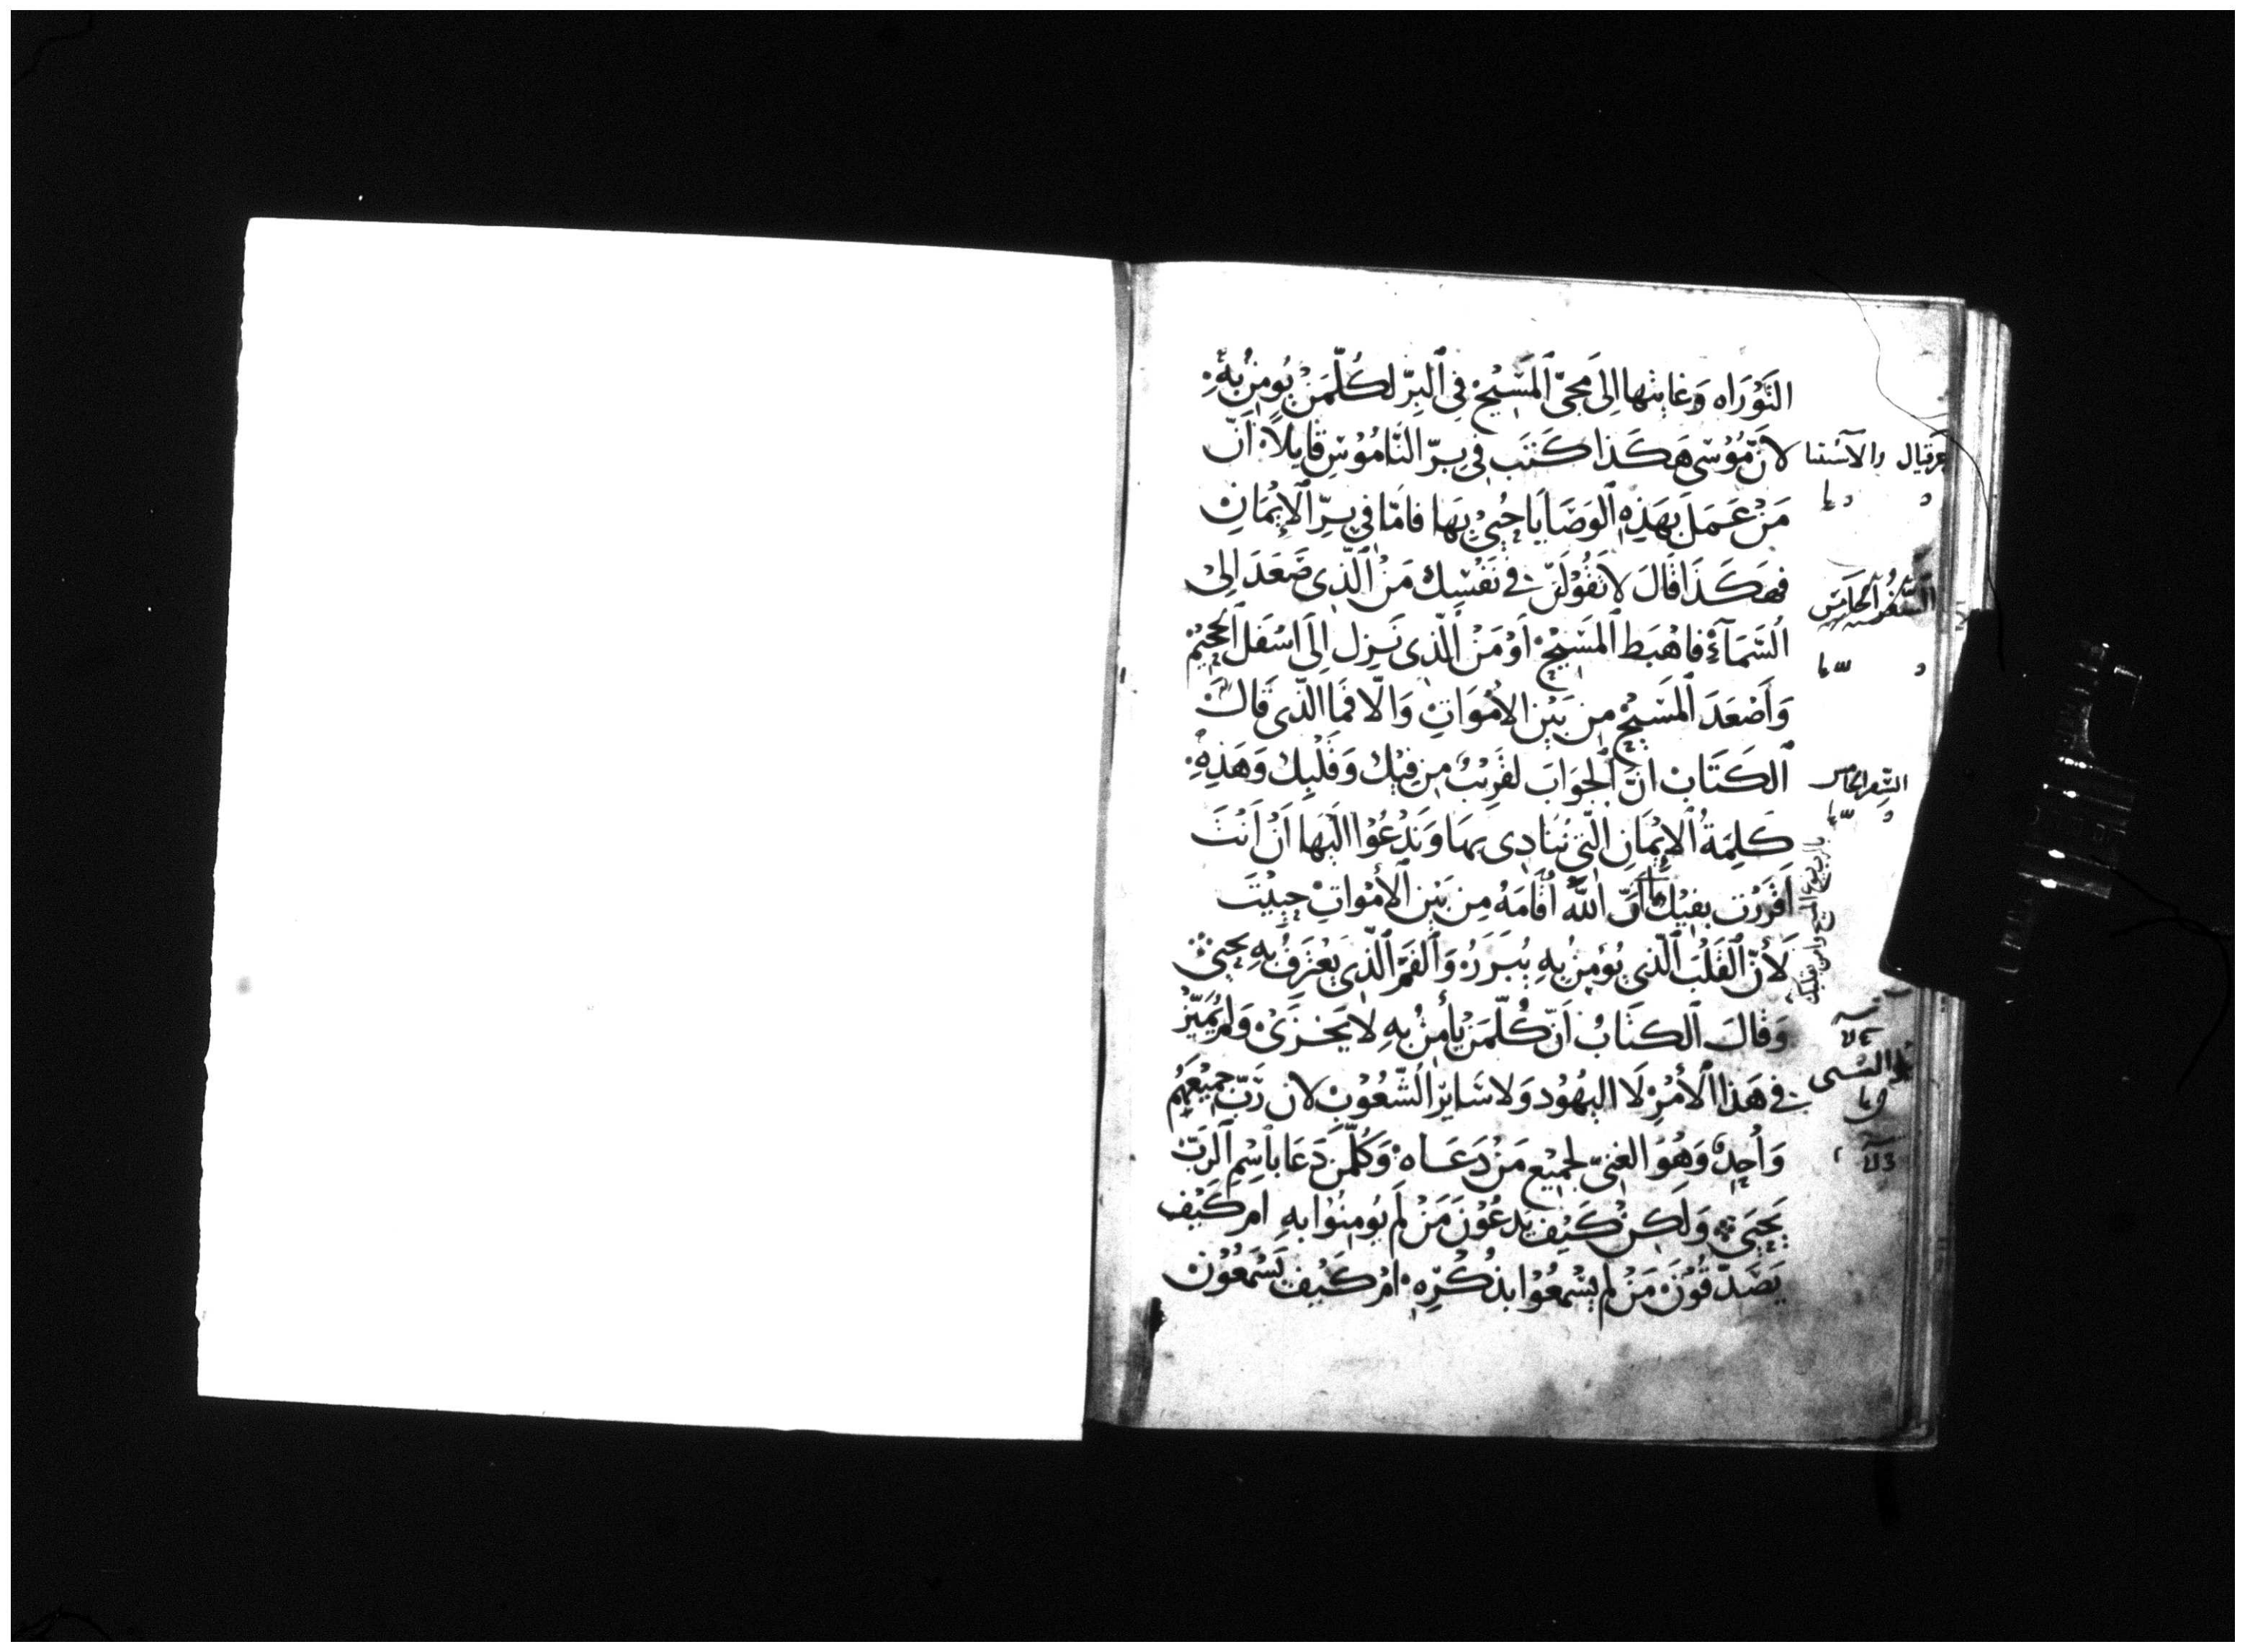 التَوْرَاه وَغايتها اِلى مَجىّ ٱلمَسِّيْح فِى ٱلبِرّ لكُلّمَنْ يُومِنُ بِهِ
لانّ مُوْسى هَكَذا كَتَب فِى بِرّ النّامُوْسِ قايلاً انّ
مَنْ عَمَلَ بهَذِهِ ٱلوَصَايَا حُيىْ بِهَا فامّا فى بِرِّ ٱلاِيْمَانِ
فهَكَذَا قالَ لا تقُوْلَنّ فى نَفْسِك مَنْ ٱلّذِى صَعَدَ اِلىْ
السَّمَآءِ فاهْبَط ٱلمَسِّيْح اَوْ مَنْ ٱلّذِى نَزِل اِلَى اسْفَل ٱلجحِيْم
وَأَصْعَدَ ٱلمَسِّيْحْ مِن بَيْنِ الاَمْوَاتِ وَالّا فَما الّذى قَالَ
ٱلكَتَابْ انّ ٱلجوَابَ لقَرِيْبٌ مِن فِيْك وَقَلْبِك وَهَذِهِ
كَلِمَةُ ٱلايْمَانِ الّتِى نُنَادِى بهَا وَنَدْعُوْا اليْهَا اَنْ اَنْتَ
اَقْرَرْتَ بفِيْك انّ اللّه اَقَامَهُ مِن بَيْنِ ٱلأَمْوَاتِ حيِيْتَ
لَأنّ ٱلقَلْبَ ٱلّذِى يُؤمِنُ بِهِ يُبَرَرُ وَٱلفَمّ ٱلّذِى يعْتَرِفُ بِهِ يحيىْ
وَقَالَ ٱلكتَابُ اَنّ كُلّمَنْ يأمِنُ بِهِ لا يَخْزَىْ وَلمْ يُمَيّزْ
فى هَذا ٱلأَمْرْ لَا اليَهُوْد وَلا سَايِرْ ٱلشّعُوْبِ لان رَبّ جمِيْعَهُمْ
وَاحِدٌ وَهُوَ الغنىّ لجمِيْع مَنْ دَعَاهُ وَكُلّمَنْ دَعَا بأسِمِ ٱلرَبّ
يَحيَى وَلَكِنْ كَيْف يَدعُوْنَ مَنْ لَم يُومِنُوْا بهِ امْ كَيْف
يَصَدّقُوْنَ مَنْ لم يسْمعُوْا بذكْرِهِ امْ كَيْف يَسْمَعُوْن
حزقيال والآستثنا
السّفر الخامس
السّفر الخامس
بالرب يسوع المسيح وآمن بقلبك